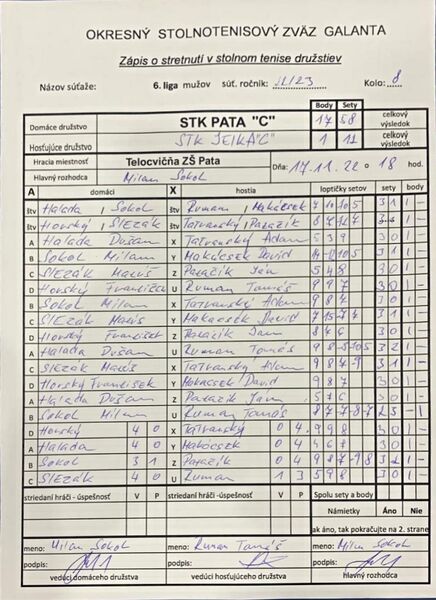 OKRESNÝ STOLNOTENISOVÝ ZVÄZ GALANTA
Zápis o stretnutí v stolnom tenise družstiev
Názov súťaže: 6. liga mužov súť. ročník: 22/23 Kolo: 8
Body Sety
Domáce družstvo STK PATA "C" 17 58 celkový výsledok
Hosťujúce družstvo STK JELKA "C" 1 11 celkový výsledok
Hracia miestnosť Telocvičňa ZŠ Pata Dňa: 17.11.22 o 18 hod.
Hlavný rozhodca Milan Sokol
A domáci X hostia loptičky setov sety body
štv Halada / Sokol štv Ruman / Makácsek 3 1 1 -
štv Horský / Slezák štv Tatranský / Paražik 1 -
A Halada Dušan X Tatranský Adam 5 3 9 3 0 1 -
B Sokol Milan Y Makácsek David 3 1 1 -
C Slezák Y Z Paražik Jan 5 4 8 3 0 1 -
D Horský František U Ruman Tomáš 9 8 7 3 0 1 -
B Sokol Milan X Tatranský Adam 9 8 4 3 0 1 -
C Slezák Y Makácsek David 3 1 1 -
D Horský František Z Paražik Jan 8 4 6 3 0 1 -
A Halada Dušan U Ruman Tomáš 3 2 1 -
C Slezák X Tatranský Adam 9 8 4 -9 3 1 1 -
D Horský František Y Makácsek David 9 8 7 3 0 1 -
A Halada Dušan Z Paražik Jan 5 7 6 3 0 1 -
B Sokol Milan U Ruman Tomáš 8 7 -7 -8 -7 2 3 - 1
D Horský 4 0 X Tatranský 0 4 3 0 1 -
A Halada 4 0 Y Makácsek 0 4 3 0 1 -
B Sokol 3 1 Z Paražik 0 4 9 8 7 -9 8 3 1 1 -
C Slezák 4 0 U Ruman 1 3 5 9 8 3 0 1 -
striedaní hráči - úspešnosť V P striedaní hráči - úspešnosť V P Spolu sety a body
Námietky Áno Nie
ak áno, tak pokračujte na 2. strane
meno: Milan Sokol meno: Ruman Tomáš meno: Milan Sokol
podpis: podpis: podpis:
vedúci domáceho družstva vedúci hosťujúceho družstva hlavný rozhodca